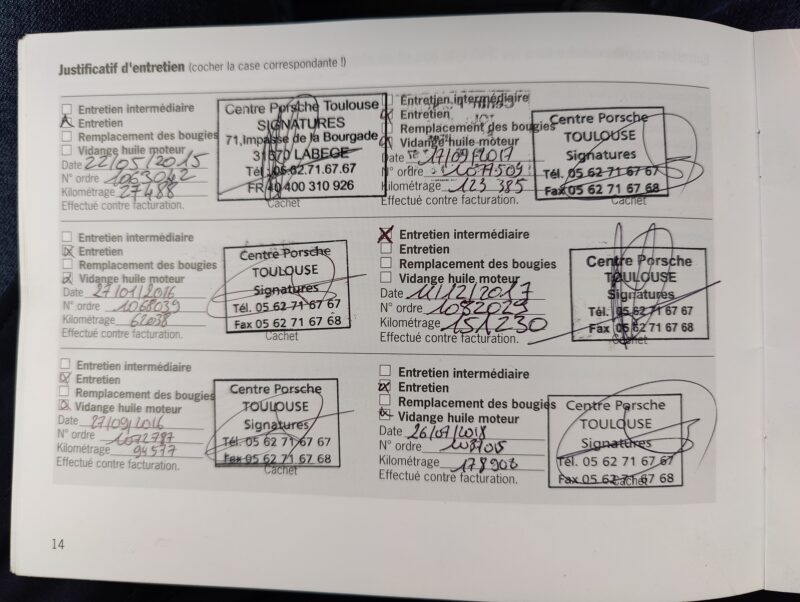 Justificatif d'entretien (cocher la case correspondante !)
Entretien intermédiaire
Entretien
Remplacement des bougies
Vidange huile moteur
Date 22/05/2015
N° ordre 1063042
Kilométrage 27488
Effectué contre facturation.
Centre Porsche Toulouse
SIGNATURES
71, Impasse de la Bourgade
31670 LABEGE
Tél : 05.62.71.67.67
FR 40 400 310 926
Cachet
Entretien intermédiaire
Entretien
Remplacement des bougies
Vidange huile moteur
Date 17/09/2017
N° ordre 1077509
Kilométrage 123 385
Effectué contre facturation.
Centre Porsche
TOULOUSE
Signatures
Tél. 05 62 71 67 67
Fax 05 62 71 67 68
Cachet
Entretien intermédiaire
Entretien
Remplacement des bougies
Vidange huile moteur
Date 27/01/2016
N° ordre 1068039
Kilométrage 62038
Effectué contre facturation.
Centre Porsche
TOULOUSE
Signatures
Tél. 05 62 71 67 67
Fax 05 62 71 67 68
Cachet
Entretien intermédiaire
Entretien
Remplacement des bougies
Vidange huile moteur
Date 11/12/2017
N° ordre 1082029
Kilométrage 151230
Effectué contre facturation.
Centre Porsche
TOULOUSE
Signatures
Tél. 05 62 71 67 67
Fax 05 62 71 67 68
Cachet
Entretien intermédiaire
Entretien
Remplacement des bougies
Vidange huile moteur
Date 27/09/2016
N° ordre 1072787
Kilométrage 94577
Effectué contre facturation.
Centre Porsche
TOULOUSE
Signatures
Tél. 05 62 71 67 67
Fax 05 62 71 67 68
Cachet
Entretien intermédiaire
Entretien
Remplacement des bougies
Vidange huile moteur
Date 26/07/2018
N° ordre 1087015
Kilométrage 178903
Effectué contre facturation.
Centre Porsche
TOULOUSE
Signatures
Tél. 05 62 71 67 67
Fax 05 62 71 67 68
Cachet
14